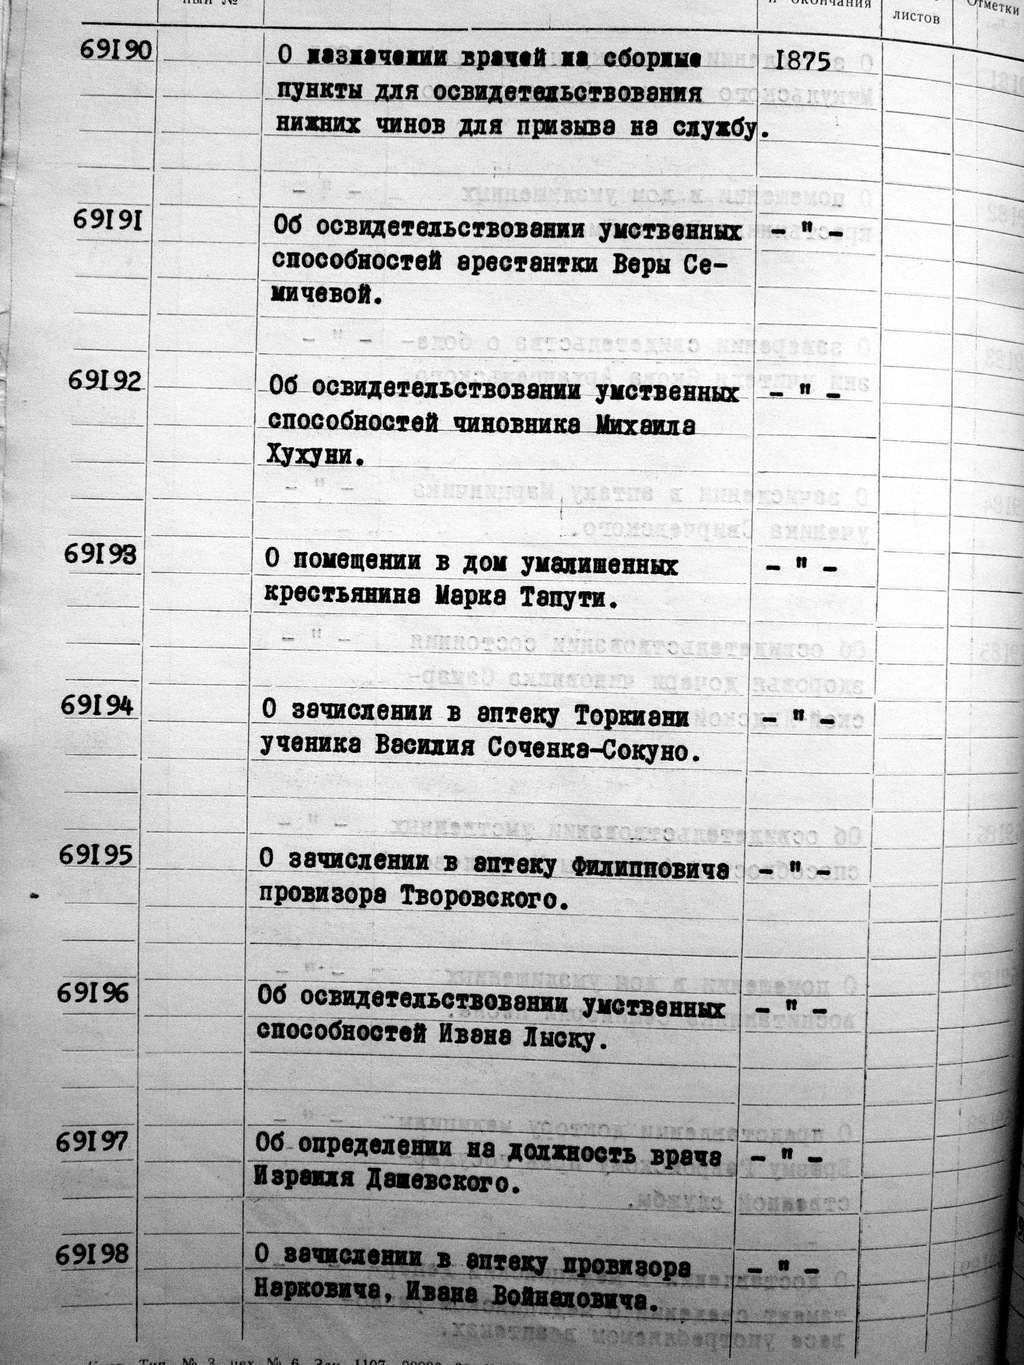 ный №
и окончания
листов
Отметки
69I90
О назначении врачей на сборные
I875
пункты для освидетельствования
нижних чинов для призыва на службу.
69I9I
Об освидетельствовании умственных
- " -
способностей арестантки Веры Се-
мичевой.
69I92
Об освидетельствовании умственных
- " -
способностей чиновника Михаила
Хухуни.
69I93
О помещении в дом умалишенных
- " -
крестьянина Марка Тапути.
69I94
О зачислении в аптеку Торкиани
- " -
ученика Василия Соченка-Сокуно.
69I95
О зачислении в аптеку Филипповича
- " -
провизора Творовского.
69I96
Об освидетельствовании умственных
- " -
способностей Ивана Лыску.
69I97
Об определении на должность врача
- " -
Израиля Дашевского.
69I98
О зачислении в аптеку провизора
- " -
Нарковича, Ивана Войналовича.